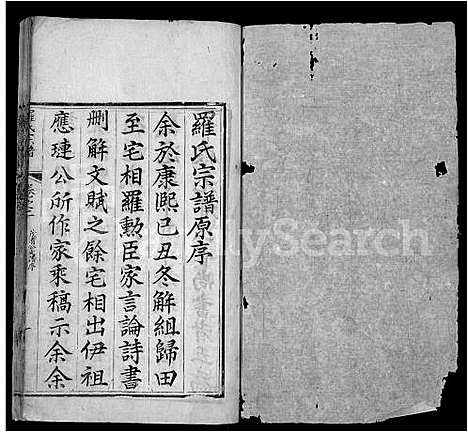 羅氏宗譜原序
余於康熙己丑冬解組歸田
至宅相羅勲臣家言論詩書
刪解文賦之餘宅相出伊祖
應璉公所作家乘稿示余余
羅氏宗譜
FamilySearch